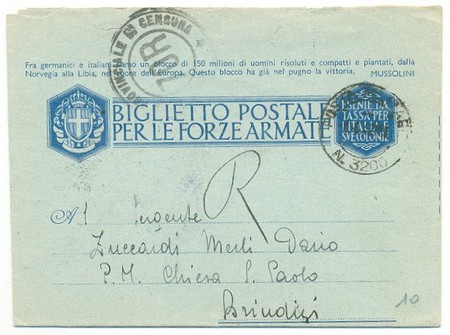 PROVINCIALE DI CENSURA 4
76R
Fra germanici e italiani siamo un blocco di 150 milioni di uomini risoluti e compatti e piantati, dalla
Norvegia alla Libia, nel cuore dell'Europa. Questo blocco ha già nel pugno la vittoria. MUSSOLINI
BIGLIETTO POSTALE
PER LE FORZE ARMATE
ESENTE DA
TASSA PER
L'ITALIA E
SVE COLONIE
N. 3200
R
Al Sergente
Zuccardi Merli Dario
P. M. Chiesa S. Paolo
Brindizi
10